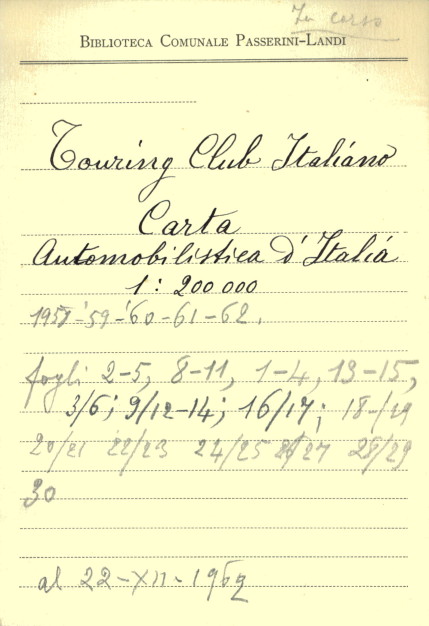 In corso
BIBLIOTECA COMUNALE PASSERINI-LANDI
Touring Club Italiano
Carta
Automobilistica d'Italia
1 : 200 000
1958-'59-'60-61-62.
fogli 2-5, 8-11, 1-4, 13-15,
3/6; 9/12-14; 16/17; 18-/19
20/21 22/23 24/25 26/27 28/29
30
al 22-XII-1962